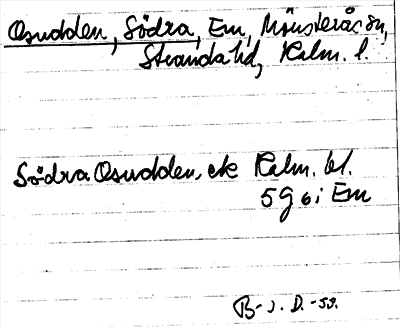 Osudden, Södra, Em, Mönsterås sn,
Stranda hd, Kalm. l.
Södra Osudden, ek Kalm. bl.
5G 6i Em
B-J. D. -53.